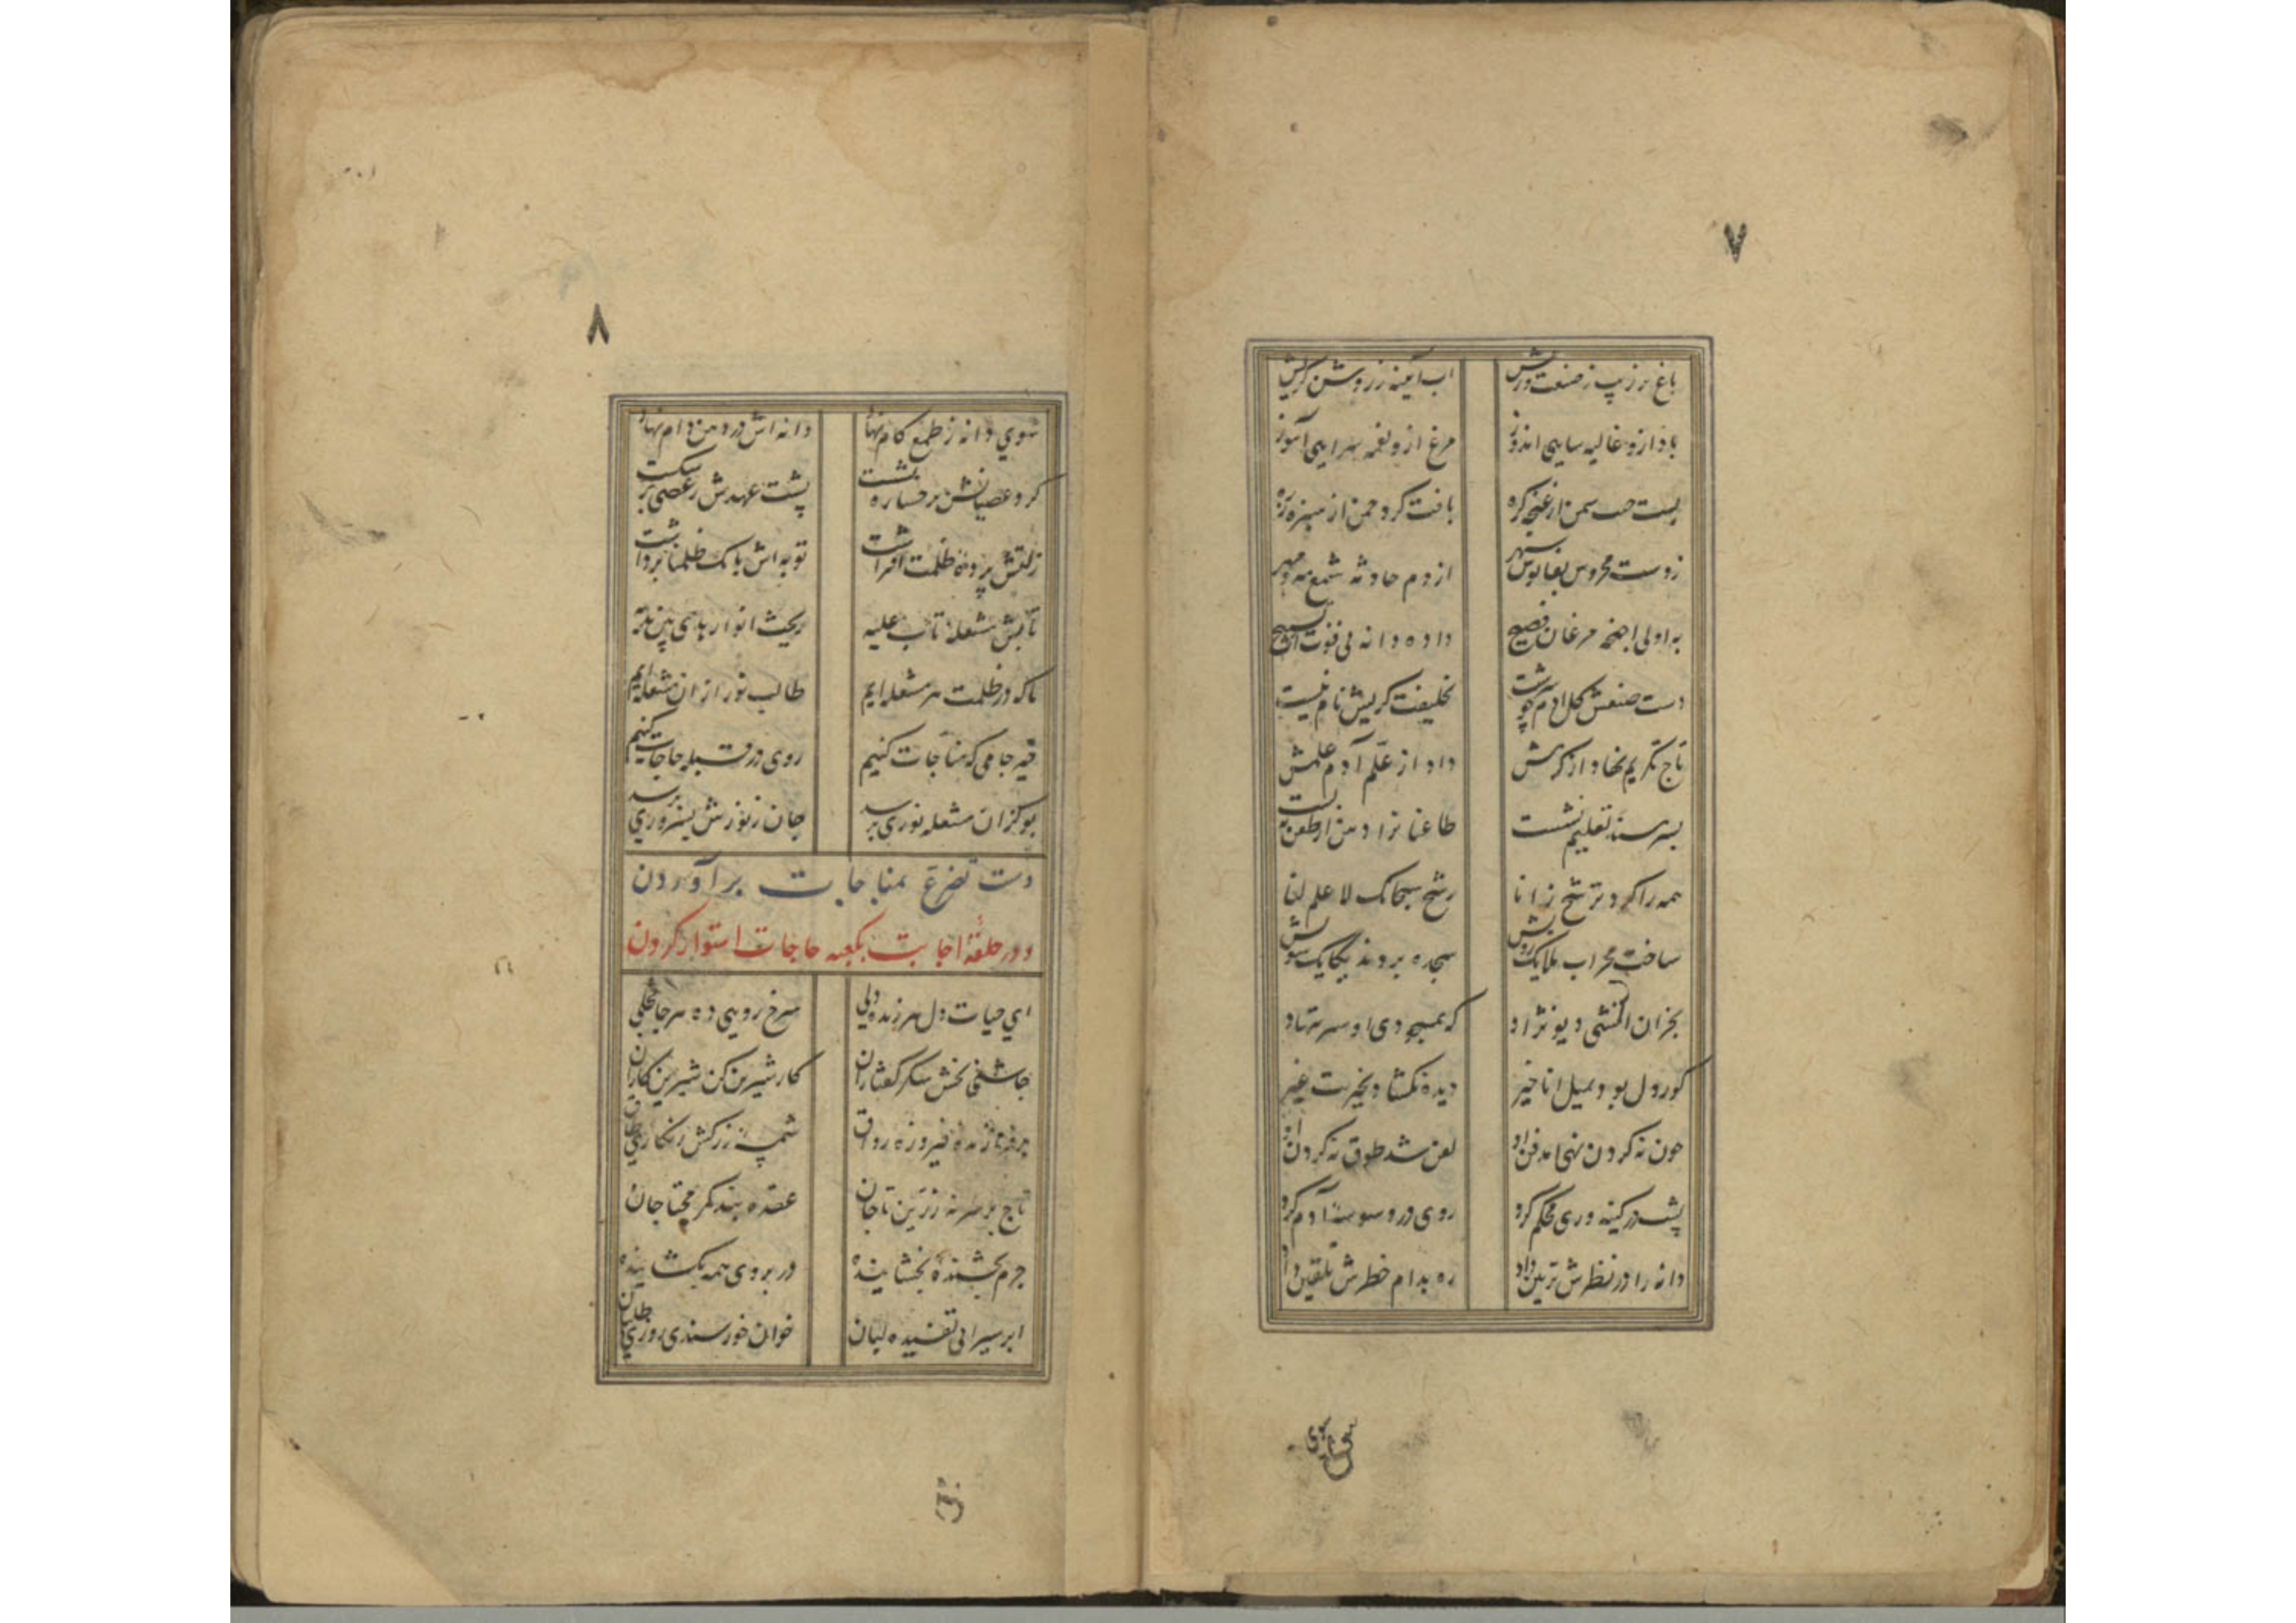 ٧
باغ پر زیب ز صنعت وریش آب آیینه ز روشن گریش
باد ازو غالیه سایی اندوز مرغ ازو نغمه سرایی آموز
بست جیب سمن از غنچه گره بافت گرد چمن از سبزه زره
زوست محروس بفانوس سپهر از دم حادثه شمع مه و مهر
به اولی اجنحه مرغان فصیح داده دانه پی قوت از تسبیح
دست صنعش گل آدم چو سرشت بخلیفت گریش نام نبشت
تاج تکریم نهاد از کرمش داد از علم آدم علمش
بسر مسند تعلیم نشست طاعنانرا دهن از طعن ببست
همه را کرد ترشح ز انا رشح سبحانک لا علم لنا
ساخت محراب ملایک رویش سجده بردند یکایک سویش
بجز آن آتشی دیو نژاد که بمسجودی او سر ننهاد
کور دل بود بمیل انا خیر دیده نگشاد بخیریت غیر
چون نه گردن نهی آمد فن او لعن شد طوق نه گردن او
پشت در کینه وری محکم کرد روی در وسوسه آدم کرد
دانه را در نظرش تزیین داد ره بدام خطرش تلقین داد
سوی دانه
٨
سوی دانه ز طمع کام نهاد دانه اش در دهن دام نهاد
گرد عصیانش بر رخساره نشست پشت عهدش ز عصی بر شکست
زلتش پرده ظلمت افراشت توبه اش بانگ ظلمنا برداشت
تابش مشعله تاب علیه ریخت انوار هدی بین یدیه
ما که در ظلمت هر مشغله ایم طالب نور از آن مشعله ایم
خیز جامی که مناجات کنیم روی در قبله حاجات کنیم
بو کزان مشعله نوری برسد جان ز نورش بسروری برسد
دست تضرع بمناجات برآوردن
و در حلقهٔ اجابت بکعبه حاجات استوار کردن
ای حیات دل هر زنده دلی سرخ رویی ده هر جا خجلی
چاشنی بخش شکر گفتاران کار شیرین کن شیرین کاران
برفرازنده فیروزه رواق شمسه زرکش زنگاری طاق
تاج بر سر نه زرین تاجان عقده بند کمر محتاجان
جرم بخشندهٔ بخشاینده در بروی همه بگشاینده
ابر سیرابی تفسیده لبان خوان خورسندی روزی طلبان